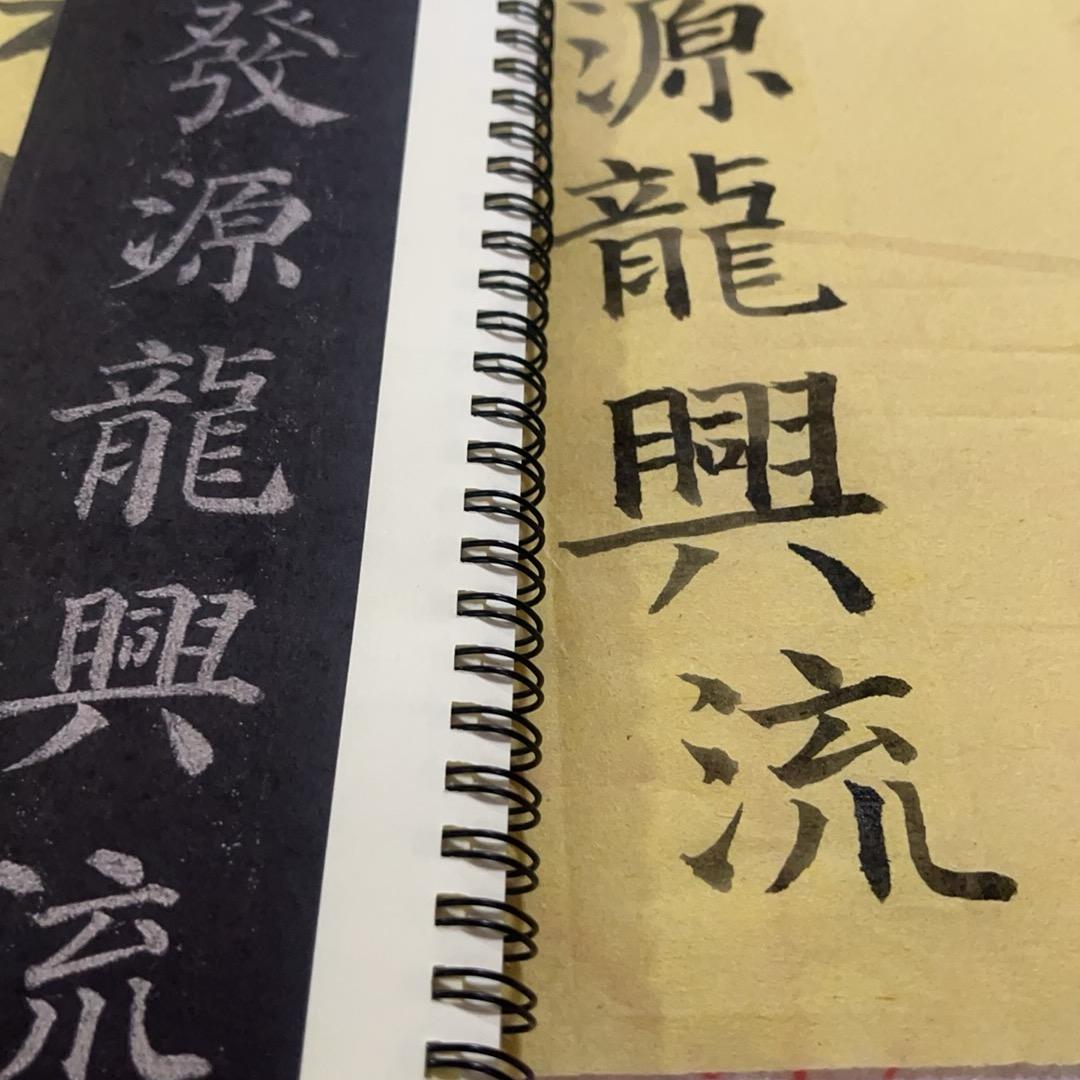 發源龍興流
源龍興流